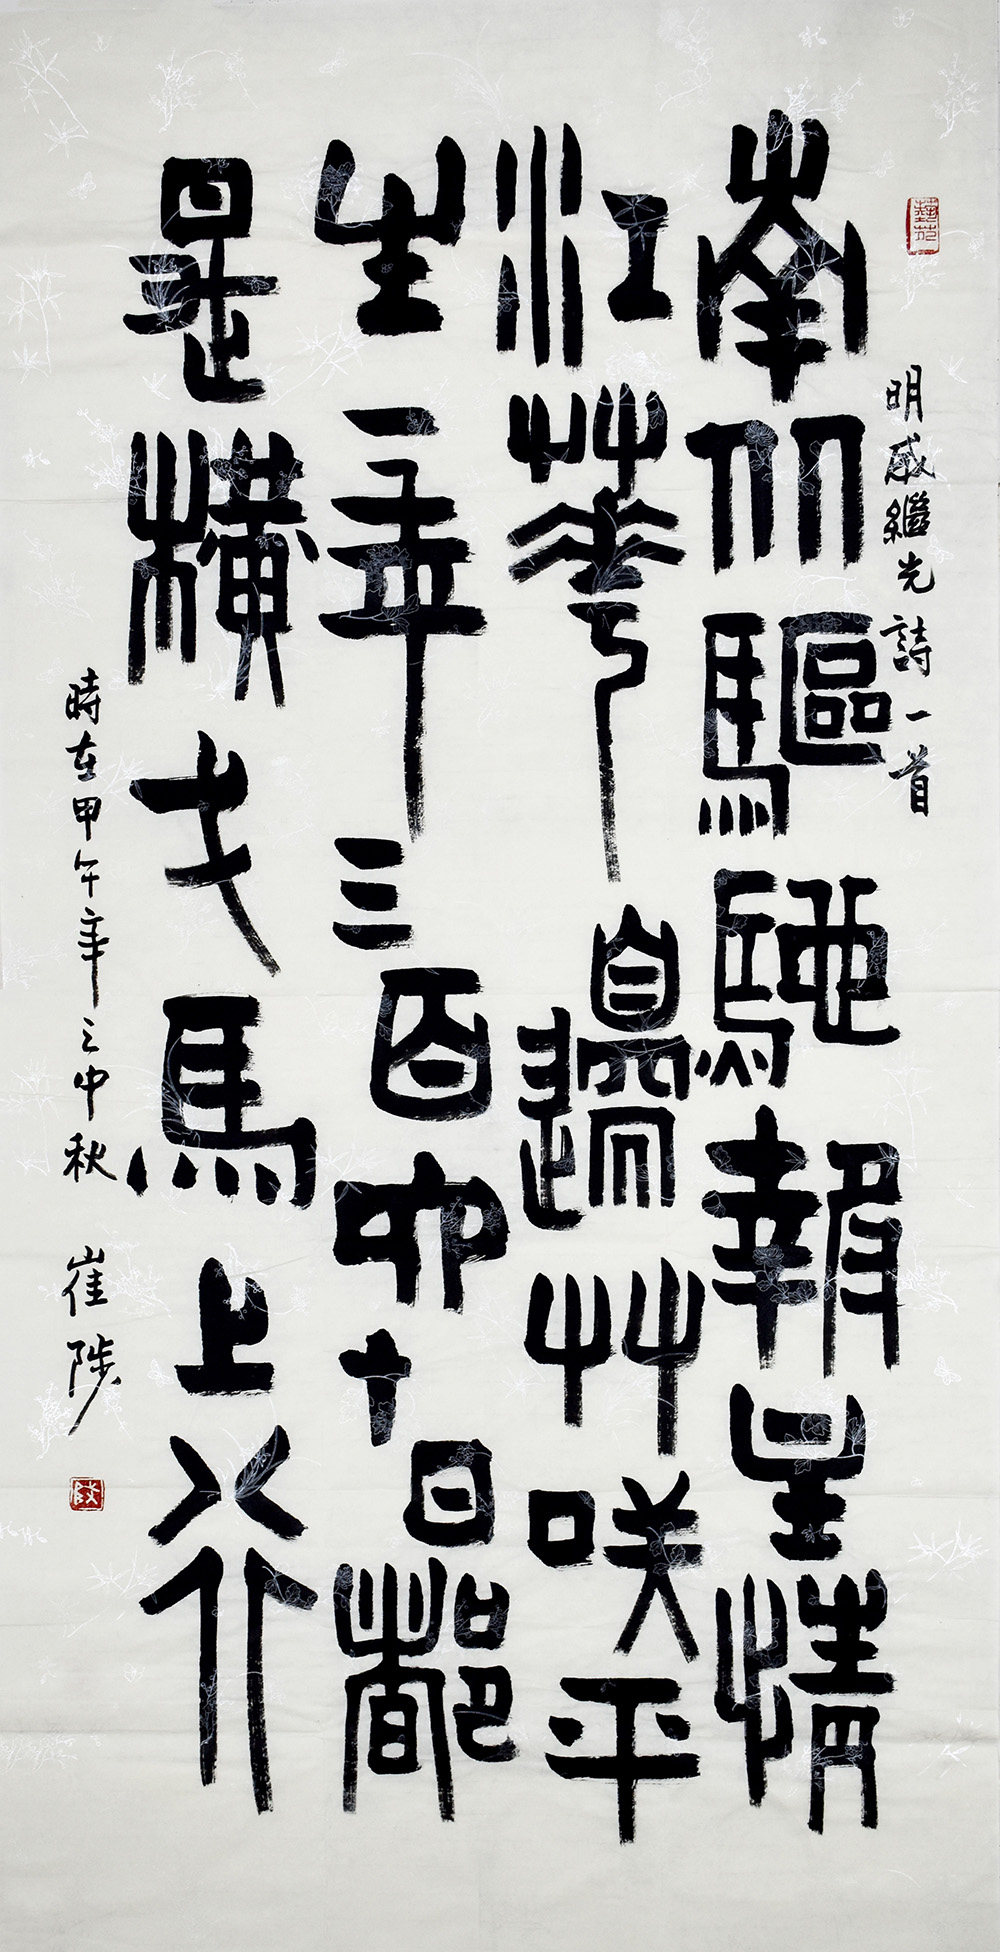 藝苑
明戚繼光詩一首
南北驅馳報主情
江華邊艸咲平
生一年三百六十日都
是橫戈馬上行
時在甲午年之中秋 崔陟